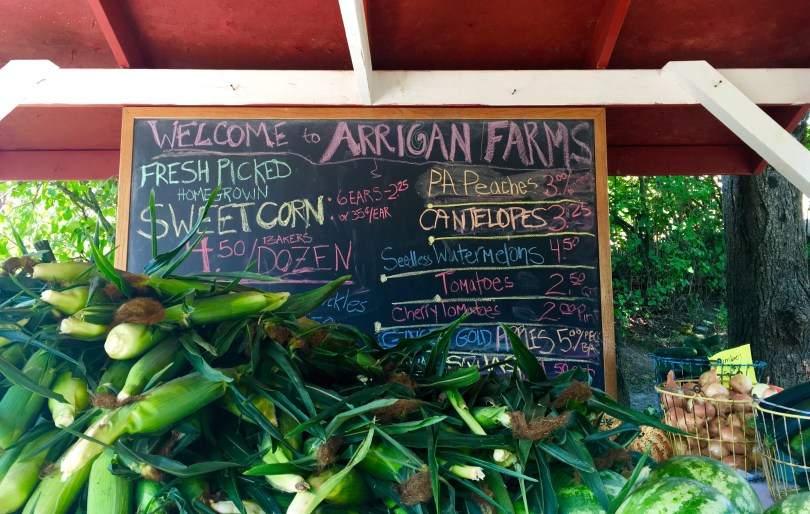 WELCOME to ARRIGAN FARMS
FRESH PICKED
HOMEGROWN
SWEET CORN
• 6 EARS - 2.25
• or 35¢/EAR
4.50/BAKERS DOZEN
PA Peaches 3.00
CANTELOPES 3.25
Seedless Watermelons 4.50
Tomatoes 2.50
Cherry Tomatoes 2.00
GINGER GOLD APPLES 5.00